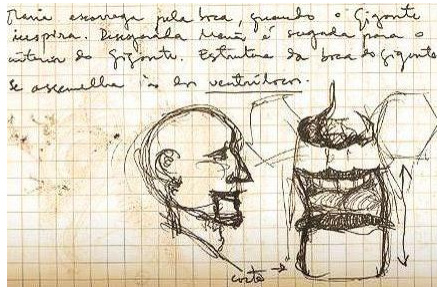 Maria escorrega pela boca, quando o Gigante
inspira. Maria é sugada para o
interior do Gigante. Estrutura da boca do gigante
se assemelha às dos ventrílocos.
corte